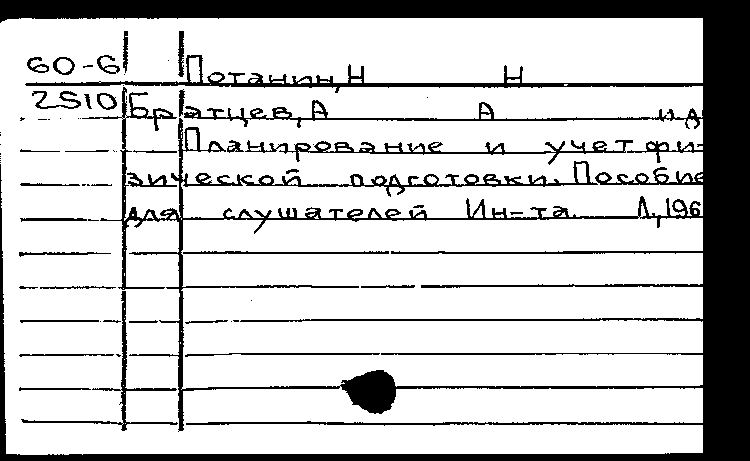 60-6 Потанин, Н Н
2510 Братцев, А А и д
Планирование и учет фи-
зической подготовки. Пособие
для слушателей Ин-та. Л., 196